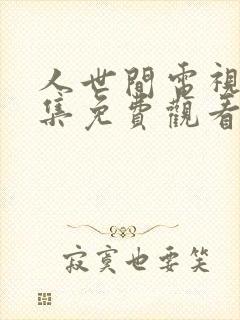 人世間電視
集免費觀看
寂寞也要笑